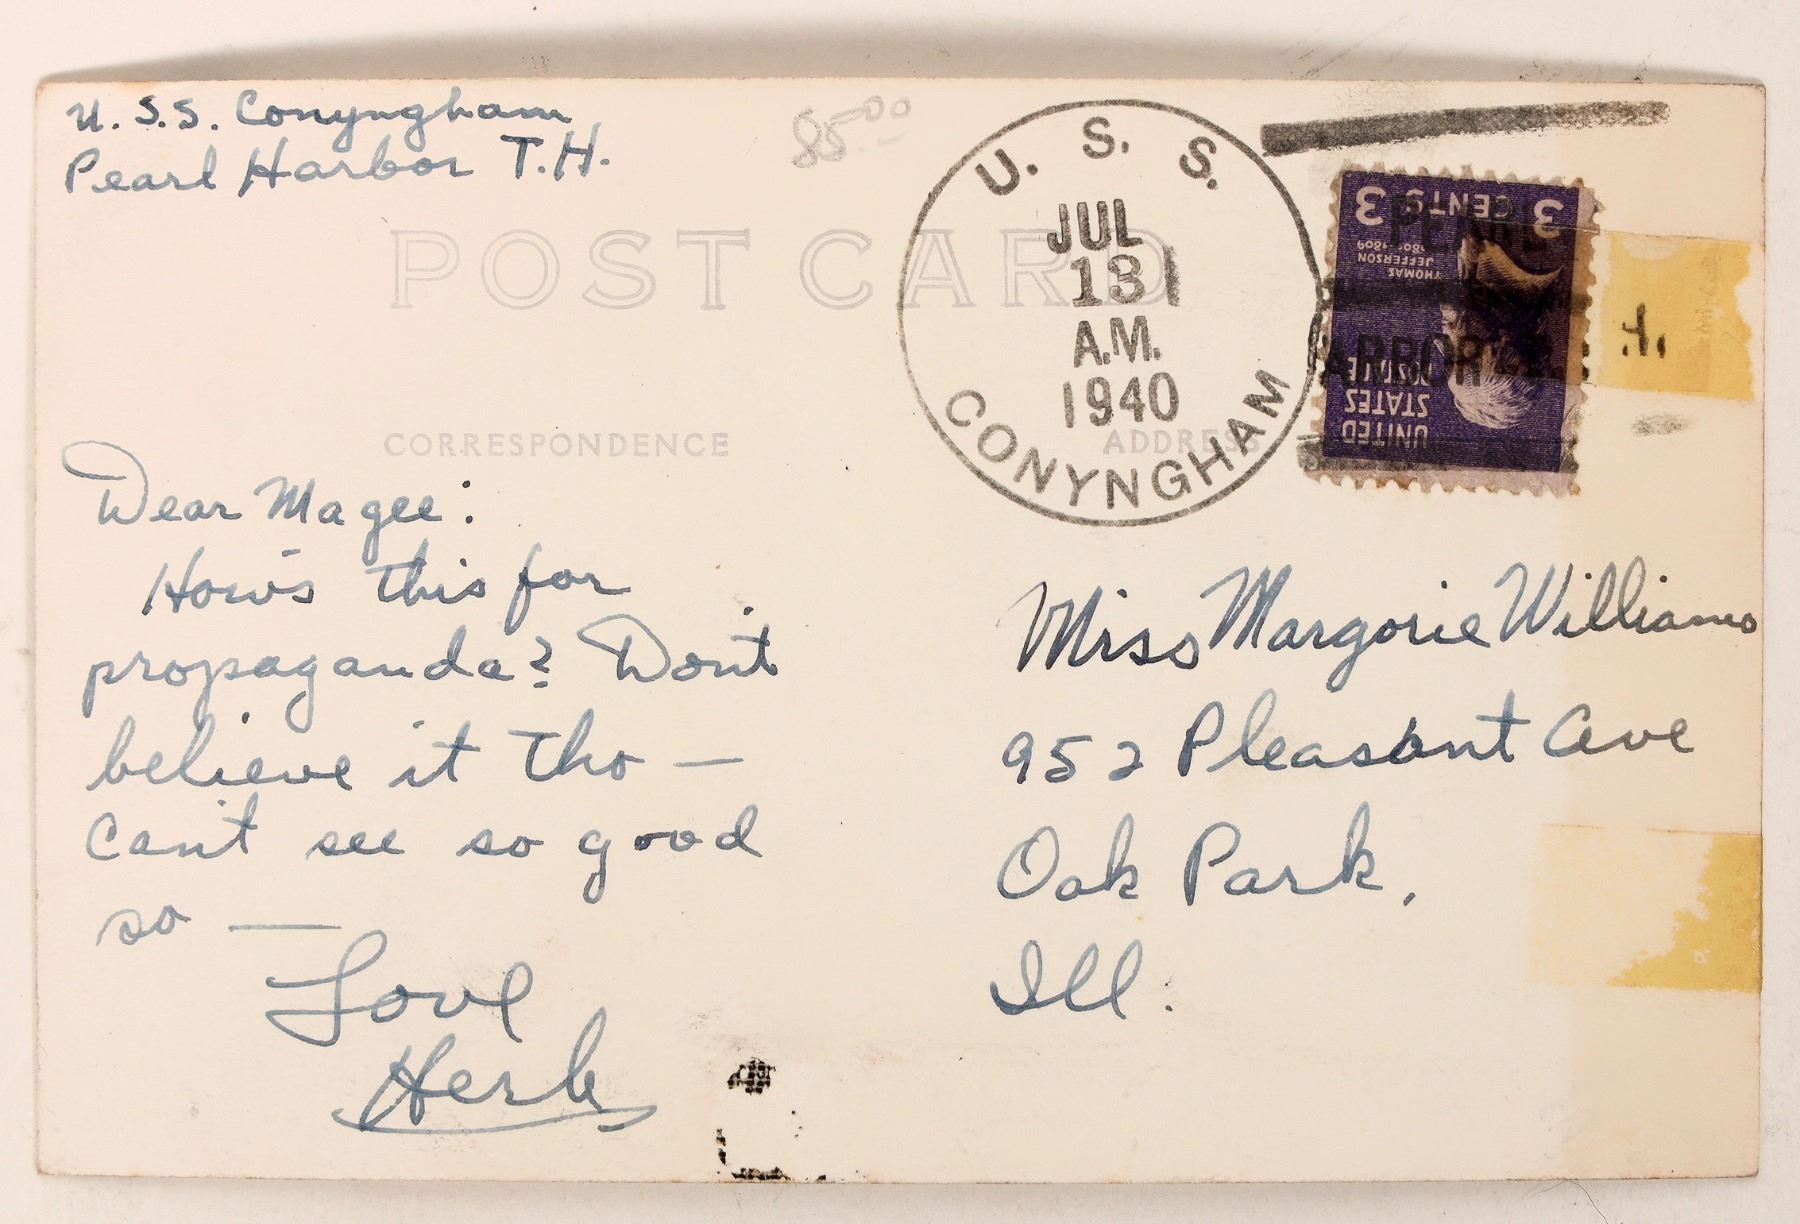 U.S.S. Conyngham
Pearl Harbor T.H.
85.00
POST CARD
U. S. S.
JUL
13
A.M.
1940
CONYNGHAM
3 CENTS 3
THOMAS
JEFFERSON
1801-1809
UNITED
STATES
POSTAGE
PEARL
HARBOR
CORRESPONDENCE
ADDRESS
Dear Magee:
How's this for
propaganda? Don't
believe it tho —
Can't see so good
so —
Love
Herb
Miss Margorie Williams
952 Pleasant Ave
Oak Park,
Ill.